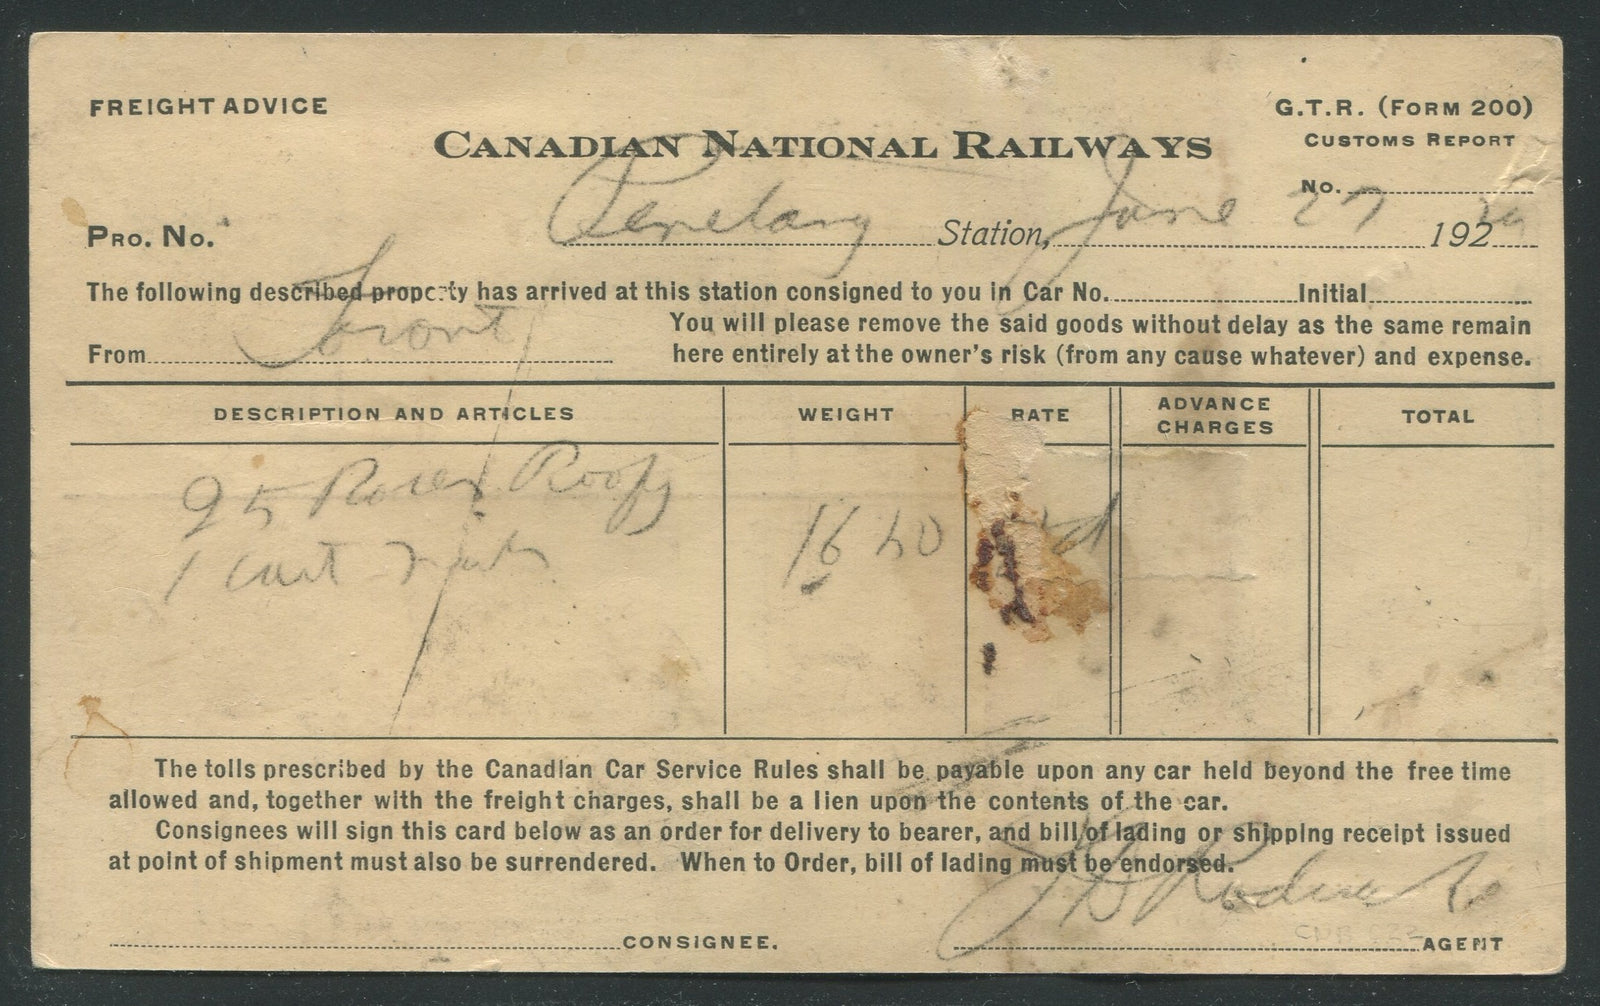 FREIGHT ADVICE
G.T.R. (FORM 200)
CANADIAN NATIONAL RAILWAYS
CUSTOMS REPORT
No.
PRO. No. Penetang Station, June 27 192
The following described property has arrived at this station consigned to you in Car No. Initial
You will please remove the said goods without delay as the same remain
From Toront here entirely at the owner's risk (from any cause whatever) and expense.
DESCRIPTION AND ARTICLES WEIGHT RATE ADVANCE CHARGES TOTAL
25 Roofg
1 16
The tolls prescribed by the Canadian Car Service Rules shall be payable upon any car held beyond the free time
allowed and, together with the freight charges, shall be a lien upon the contents of the car.
Consignees will sign this card below as an order for delivery to bearer, and bill of lading or shipping receipt issued
at point of shipment must also be surrendered. When to Order, bill of lading must be endorsed.
CONSIGNEE. AGENT